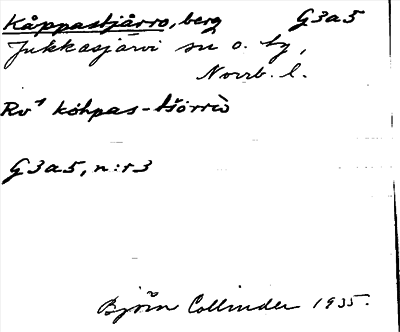 Kåppastjårro, berg G3a5
Jukkasjärvi sn o. tg,
Norrb. l.
Rv¹ kòhpas-tšòrrò
G3a5, n:r3
Björn Collinder 1935.